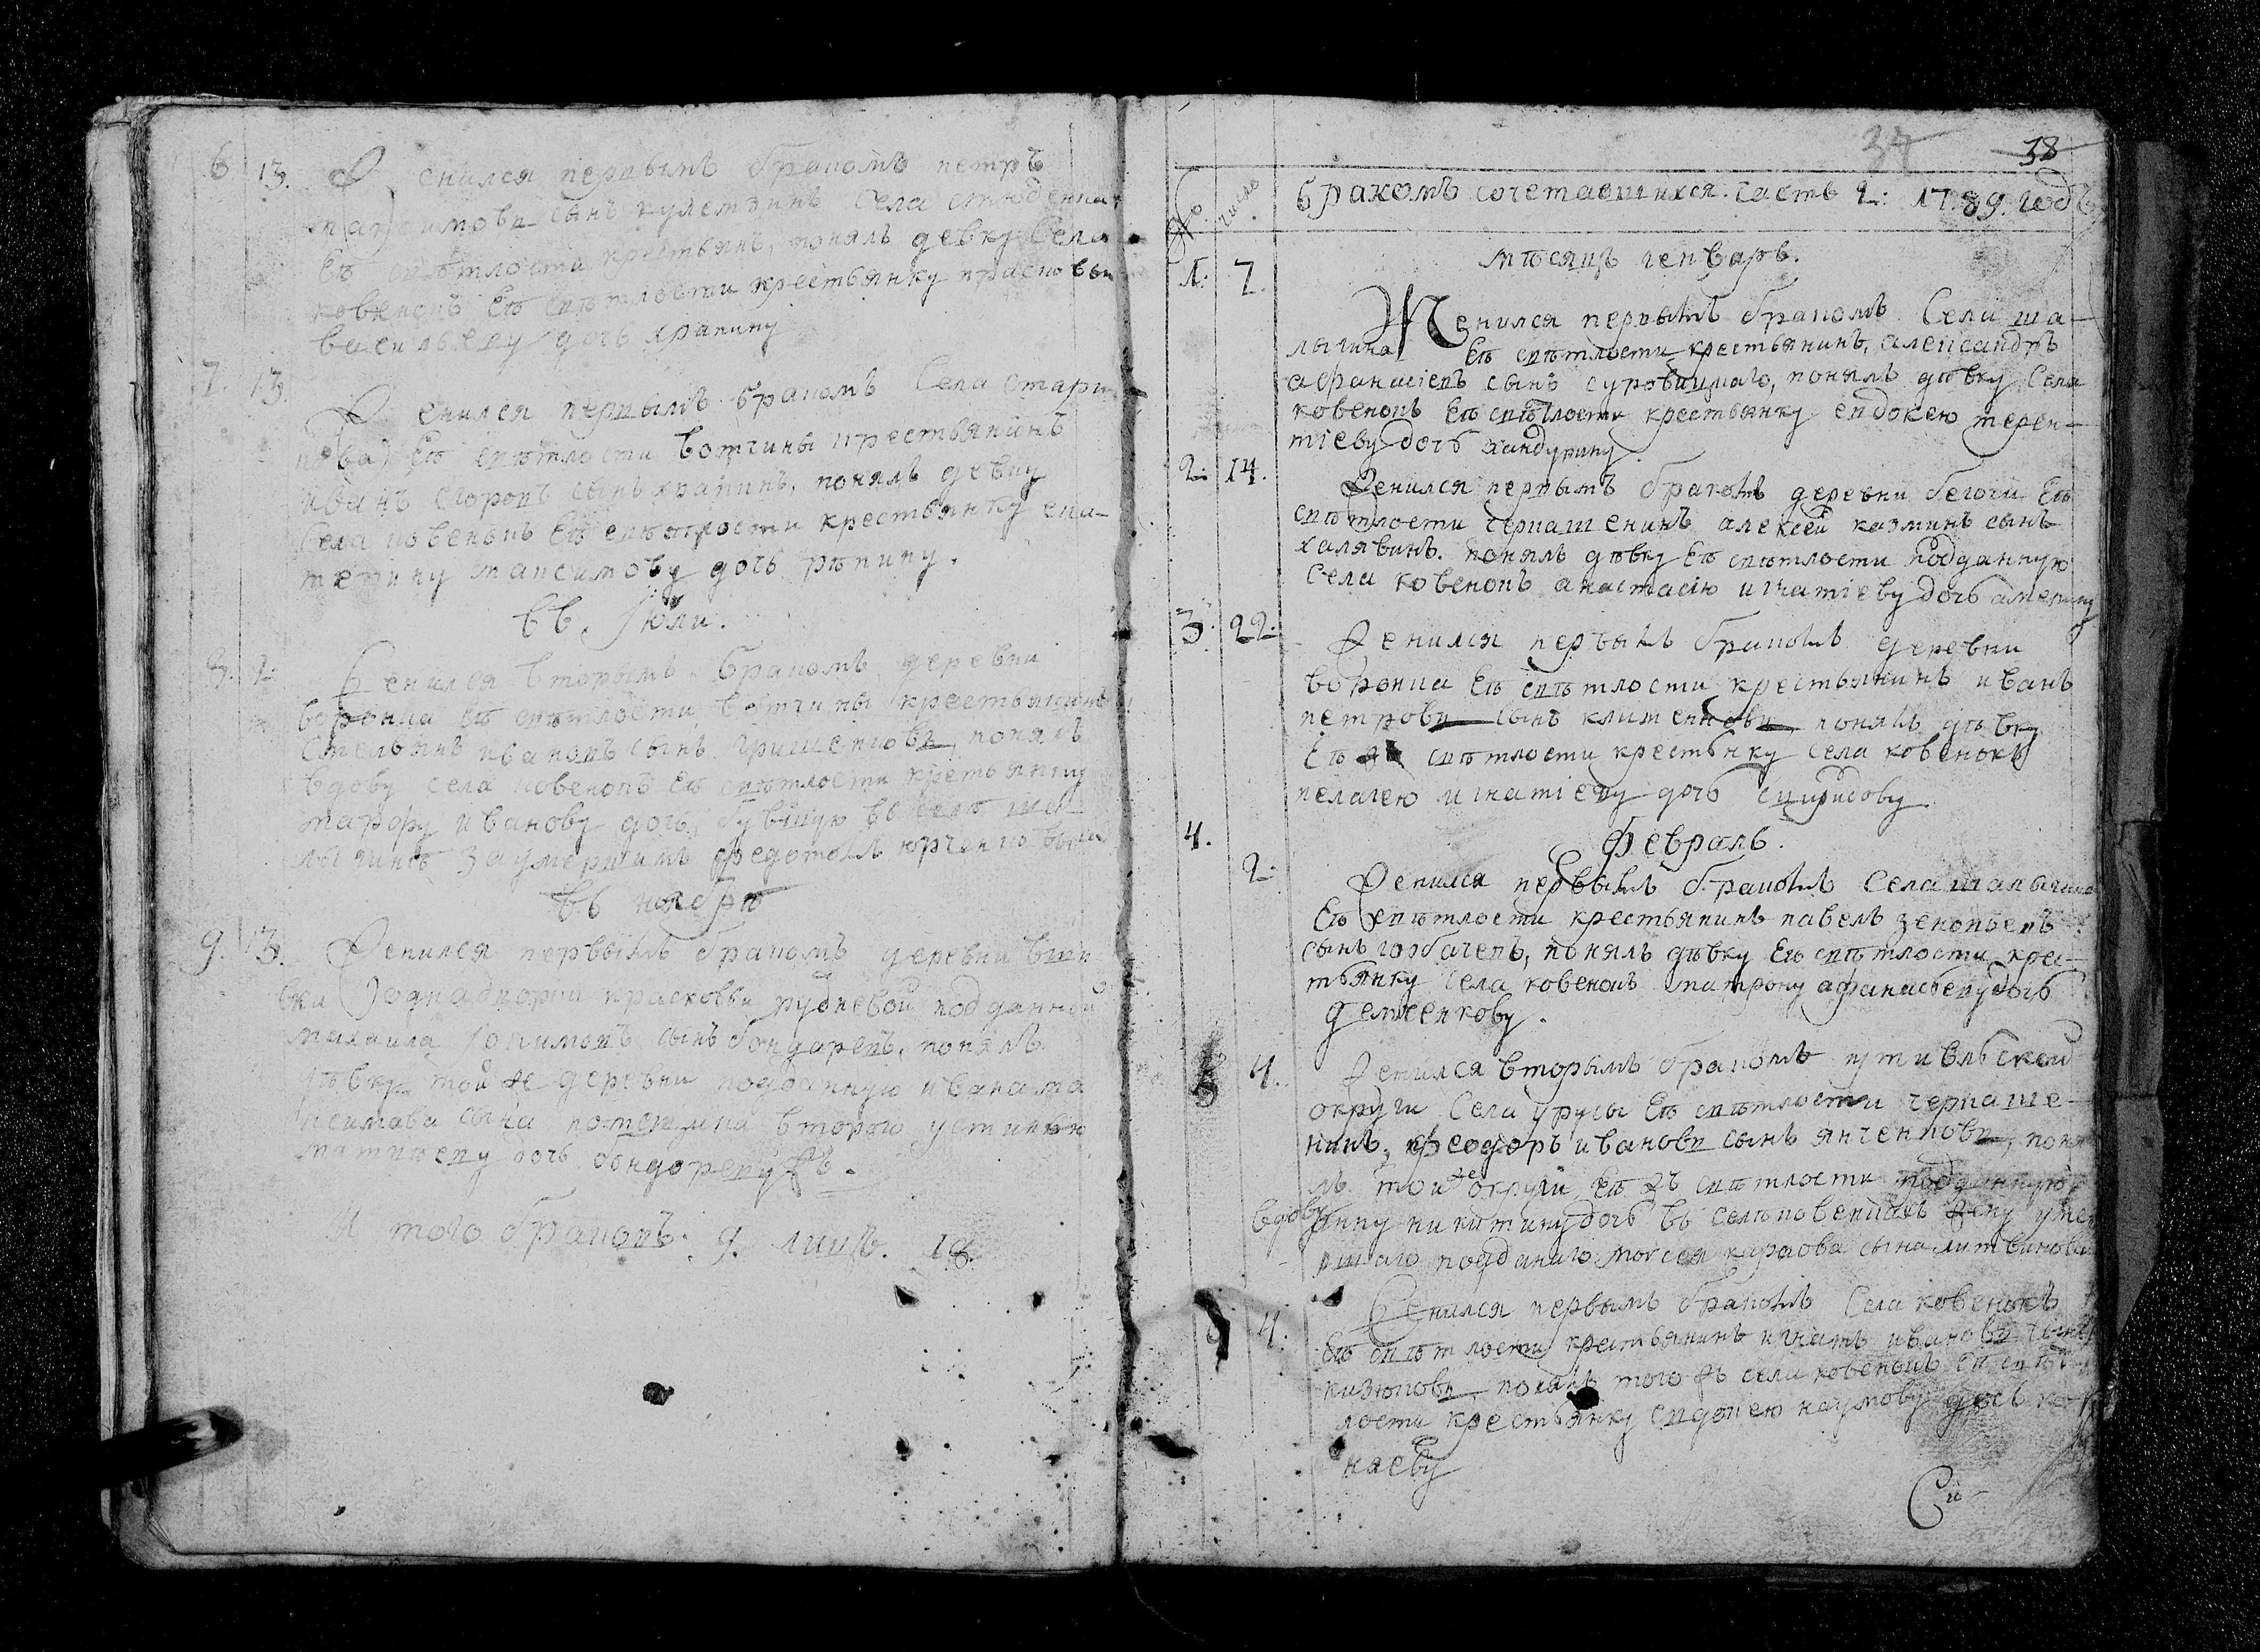 6 13. Женился первымъ бракомъ петръ
максимовъ сынъ кулемзинъ села студенка
Ея свѣтлости крестьянъ, понялъ девку села
ковенокъ Ея свѣтлости крестьянку прасковью
васильеву дочь храпину
7. 13. Женился первымъ бракомъ села стари
кова Ея свѣтлости вотчины крестьянинъ
иванъ егоровъ сынъ храпинъ, понялъ девку
села ковенокъ Ея свѣтлости крестьянку ека-
терину максимову дочь рѣпину.
въ Июли.
8. 2. Женился вторымъ бракомъ деревни
воронка Ея свѣтлости вотчины крестьянинъ
Емельянъ ивановъ сынъ гришенковъ, понялъ
вдову села ковенокъ Ея свѣтлости крестьянку
марфу иванову дочь, бувшую въ селѣ ша-
лыгинѣ за умершимъ федотомъ юрченковымъ
въ ноябрѣ
9. 13. Женился первымъ бракомъ деревни
вки однадворки прасковьи рудневой подданной
михаила ю кимовъ сынъ бондаревъ, понялъ
дѣвку той же деревни подданную ивана ма
ксимова сына потемкина второго устинью
матвѣеву дочь бондореву.
И того браковъ: 9. лицъ. 18.
37 38
№. число Бракомъ сочетавшихся. часть 2: 1789. годъ
мѣсяцъ генварь.
1: 7.
Женился первымъ бракомъ села ша-
лыгина Ея свѣтлости крестьянинъ, александръ
афанасіевъ сынъ суровицкаго, понялъ дѣвку села
ковенокъ Ея свѣтлости крестьянку евдокею терен-
тіеву дочь хандурину.
2: 14. Женился первымъ бракомъ деревни бегочи Ея
свѣтлости черкашенинъ алексей казминъ сынъ
халявинъ. понялъ дѣвку Ея свѣтлости подданную
села ковенокъ анастасію игнатіеву дочь америну
3: 22: Женился первымъ бракомъ деревни
воронка Ея свѣтлости крестьянинъ иванъ
петровъ сынъ клименковъ понялъ дѣвку
Ея свѣтлости крестьянку села ковенокъ
пелагею игнатіеву дочь спиридову
4. Февраль.
2: Женился первымъ бракомъ села шалыгина
Ея свѣтлости крестьянинъ павелъ зеновьевъ
сынъ горбачевъ, понялъ дѣвку Ея свѣтлости крес-
тьянку села ковенокъ матрону афанасьеву дочь
демченкову.
5 4. Женился вторымъ бракомъ путивльской
округи села урусы Ея свѣтлости черкаше-
нинъ, феодоръ ивановъ сынъ янченковъ, поня
лъ той же округи Ея жъ свѣтлости подданную
вдову анну никитину дочь въ селѣ ковенкахъ жену умер
шаго подданаго моисея карпова сына литвинова
4. Женился первымъ бракомъ села ковенокъ
Ея свѣтлости крестьянинъ игнатъ ивановъ сынъ
кизюковъ, понялъ того жъ села ковенокъ Ея свѣт
лости крестьянку евдокею наумову дочь кор
няеву